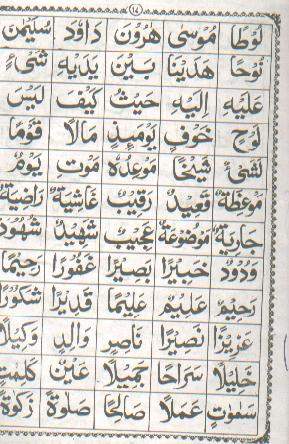 ١٤
لُوْطًا مُوْسٰى هٰرُوْنَ دَاوٗدَ سُلَيْمٰنَ
نُوْحًا هَدَيْنَا بَيْنَ يَدَيْهِ شَيْءٍ
عَلَيْهِ اِلَيْهِ حَيْثُ كَيْفَ لَيْسَ
لَوْحٍ خَوْفٍ يَوْمَئِذٍ مَالًا قَوْمًا
لَشَيْءٌ شَيْخًا مَوْعِدُهٗ مَوْتِ يَوْمُ
مَوْعِظَةٌ قَعِيْدٌ رَقِيْبٌ غَاشِيَةٌ رَاضِيَةٌ
جَارِيَةٌ مَوْضُوْعَةٌ عَجِيْبٌ شَهِيْدٌ شُهُوْدٌ
وَدُوْدٌ خَبِيْرًا بَصِيْرًا غَفُوْرًا رَحِيْمًا
رَحِيْمٌ عَلِيْمٌ عَلِيْمًا قَدِيْرًا شَكُوْرًا
عَزِيْزًا نَصِيْرًا نَاصِرٍ وَالِدٍ وَكِيْلًا
خَلِيْلًا سَرَاحًا جَمِيْلًا عَيْنٌ كَلِمٰتٍ
سَمٰوٰتٍ عَمَلًا صَالِحًا صَلٰوةً زَكٰوةً